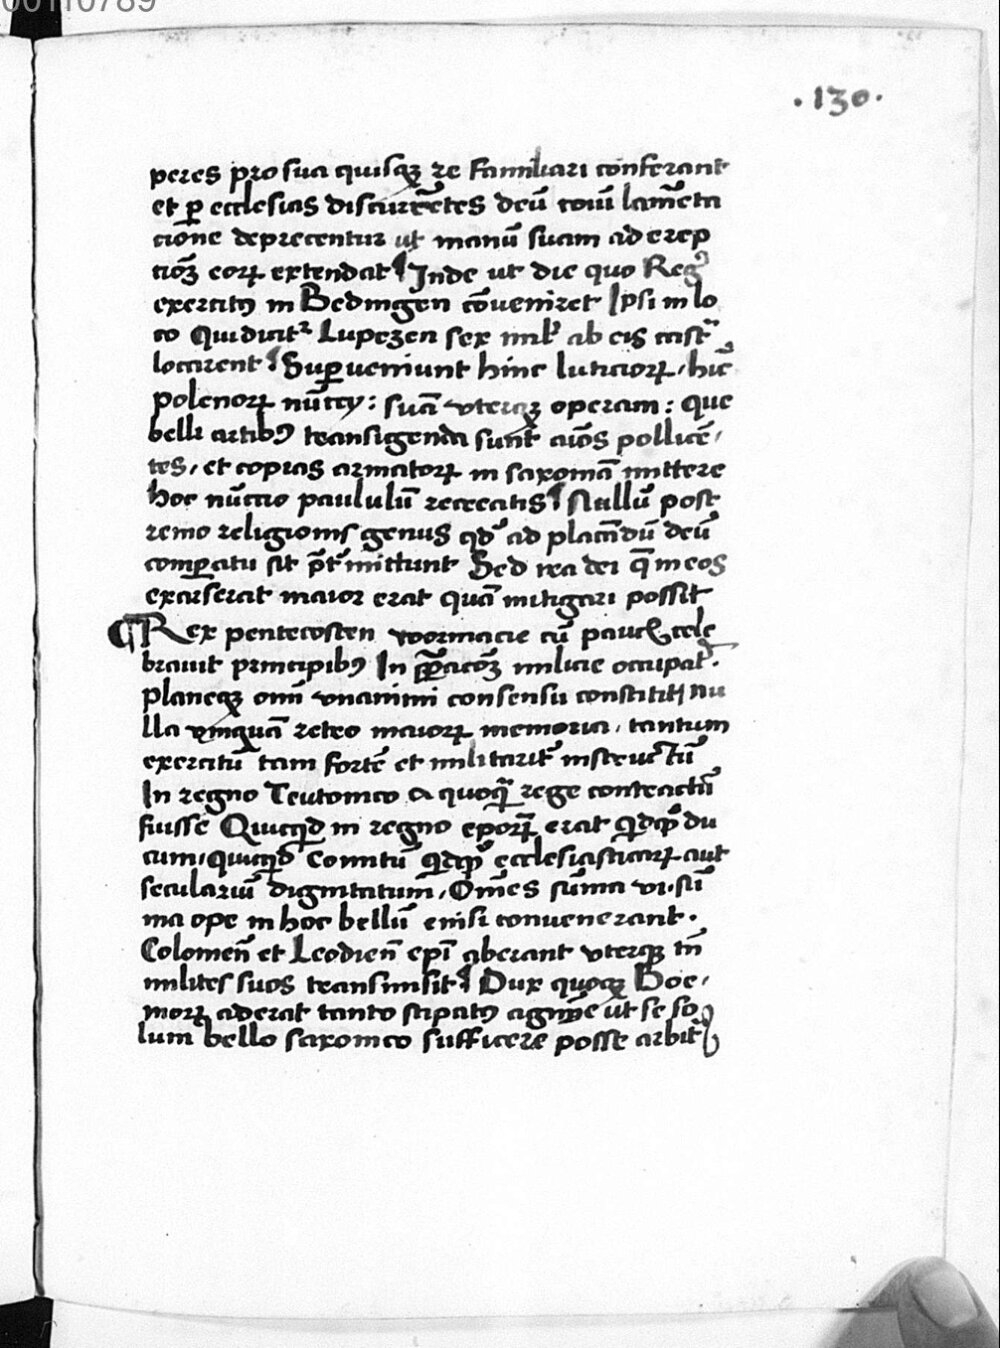 00110789
.130.
peres pro sua quisqꝫ re familiari conferant
et ꝑ ecclesias discurrētes deū cōui lamēta
cione deprecentur ut manū suam ad erep
tioꝫ eoꝝ extendat Inde ut die quo Regꝰ
exercitꝰ in Bedingen cōveniret Ipsi in lo
co Qui dicitr Lupezen sex mil' ab eis castr̄
locarent Suꝑveniunt hinc luticioꝝ, hīc
polenoꝝ nūcÿ: suā uterqꝫ operam: que
belli artibꝰ transigenda sunt aīos pollicē,
tes, et copias armatoꝝ in saxoniā mittere
hoc nūccio paululū recreatis Nullū post
remo religionis genus qd' ad placādū deū
comꝑatū sit p̄t'mittunt Sed ira dei q̄ in eos
exarserat maior erat quā mitigari possit
¶ Rex pentecosten wormacie cū paucꝭ cele
bravit principibꝰ In p̄ꝑacōꝫ milicie occupatꝰ.
planeqꝫ omī unanimi consensu constitit nu
lla umquā retro maioꝝ memoria, tantum
exercitū tam fortē et militarit̄ instructū
In regno Teutonico a quoq̄ rege contractū
fuisse Quicqd in regno epoꝝ erat qdqꝫ du
cum, quicqd Comitū qdqꝫ ecclesiasticaꝝ aut
seculariū dignitatum, Omēs sūma vi, sū
ma ope in hoc bellū enisi convenerant.
Colonieñ et Leodieñ ep̄i aberant uterqꝫ tn̄
milites suos transmisit Dux quoqꝫ Boe,
moꝝ aderat tanto stipatꝰ agmīe ut se so
lum bello saxonico sufficere posse arbitr̄